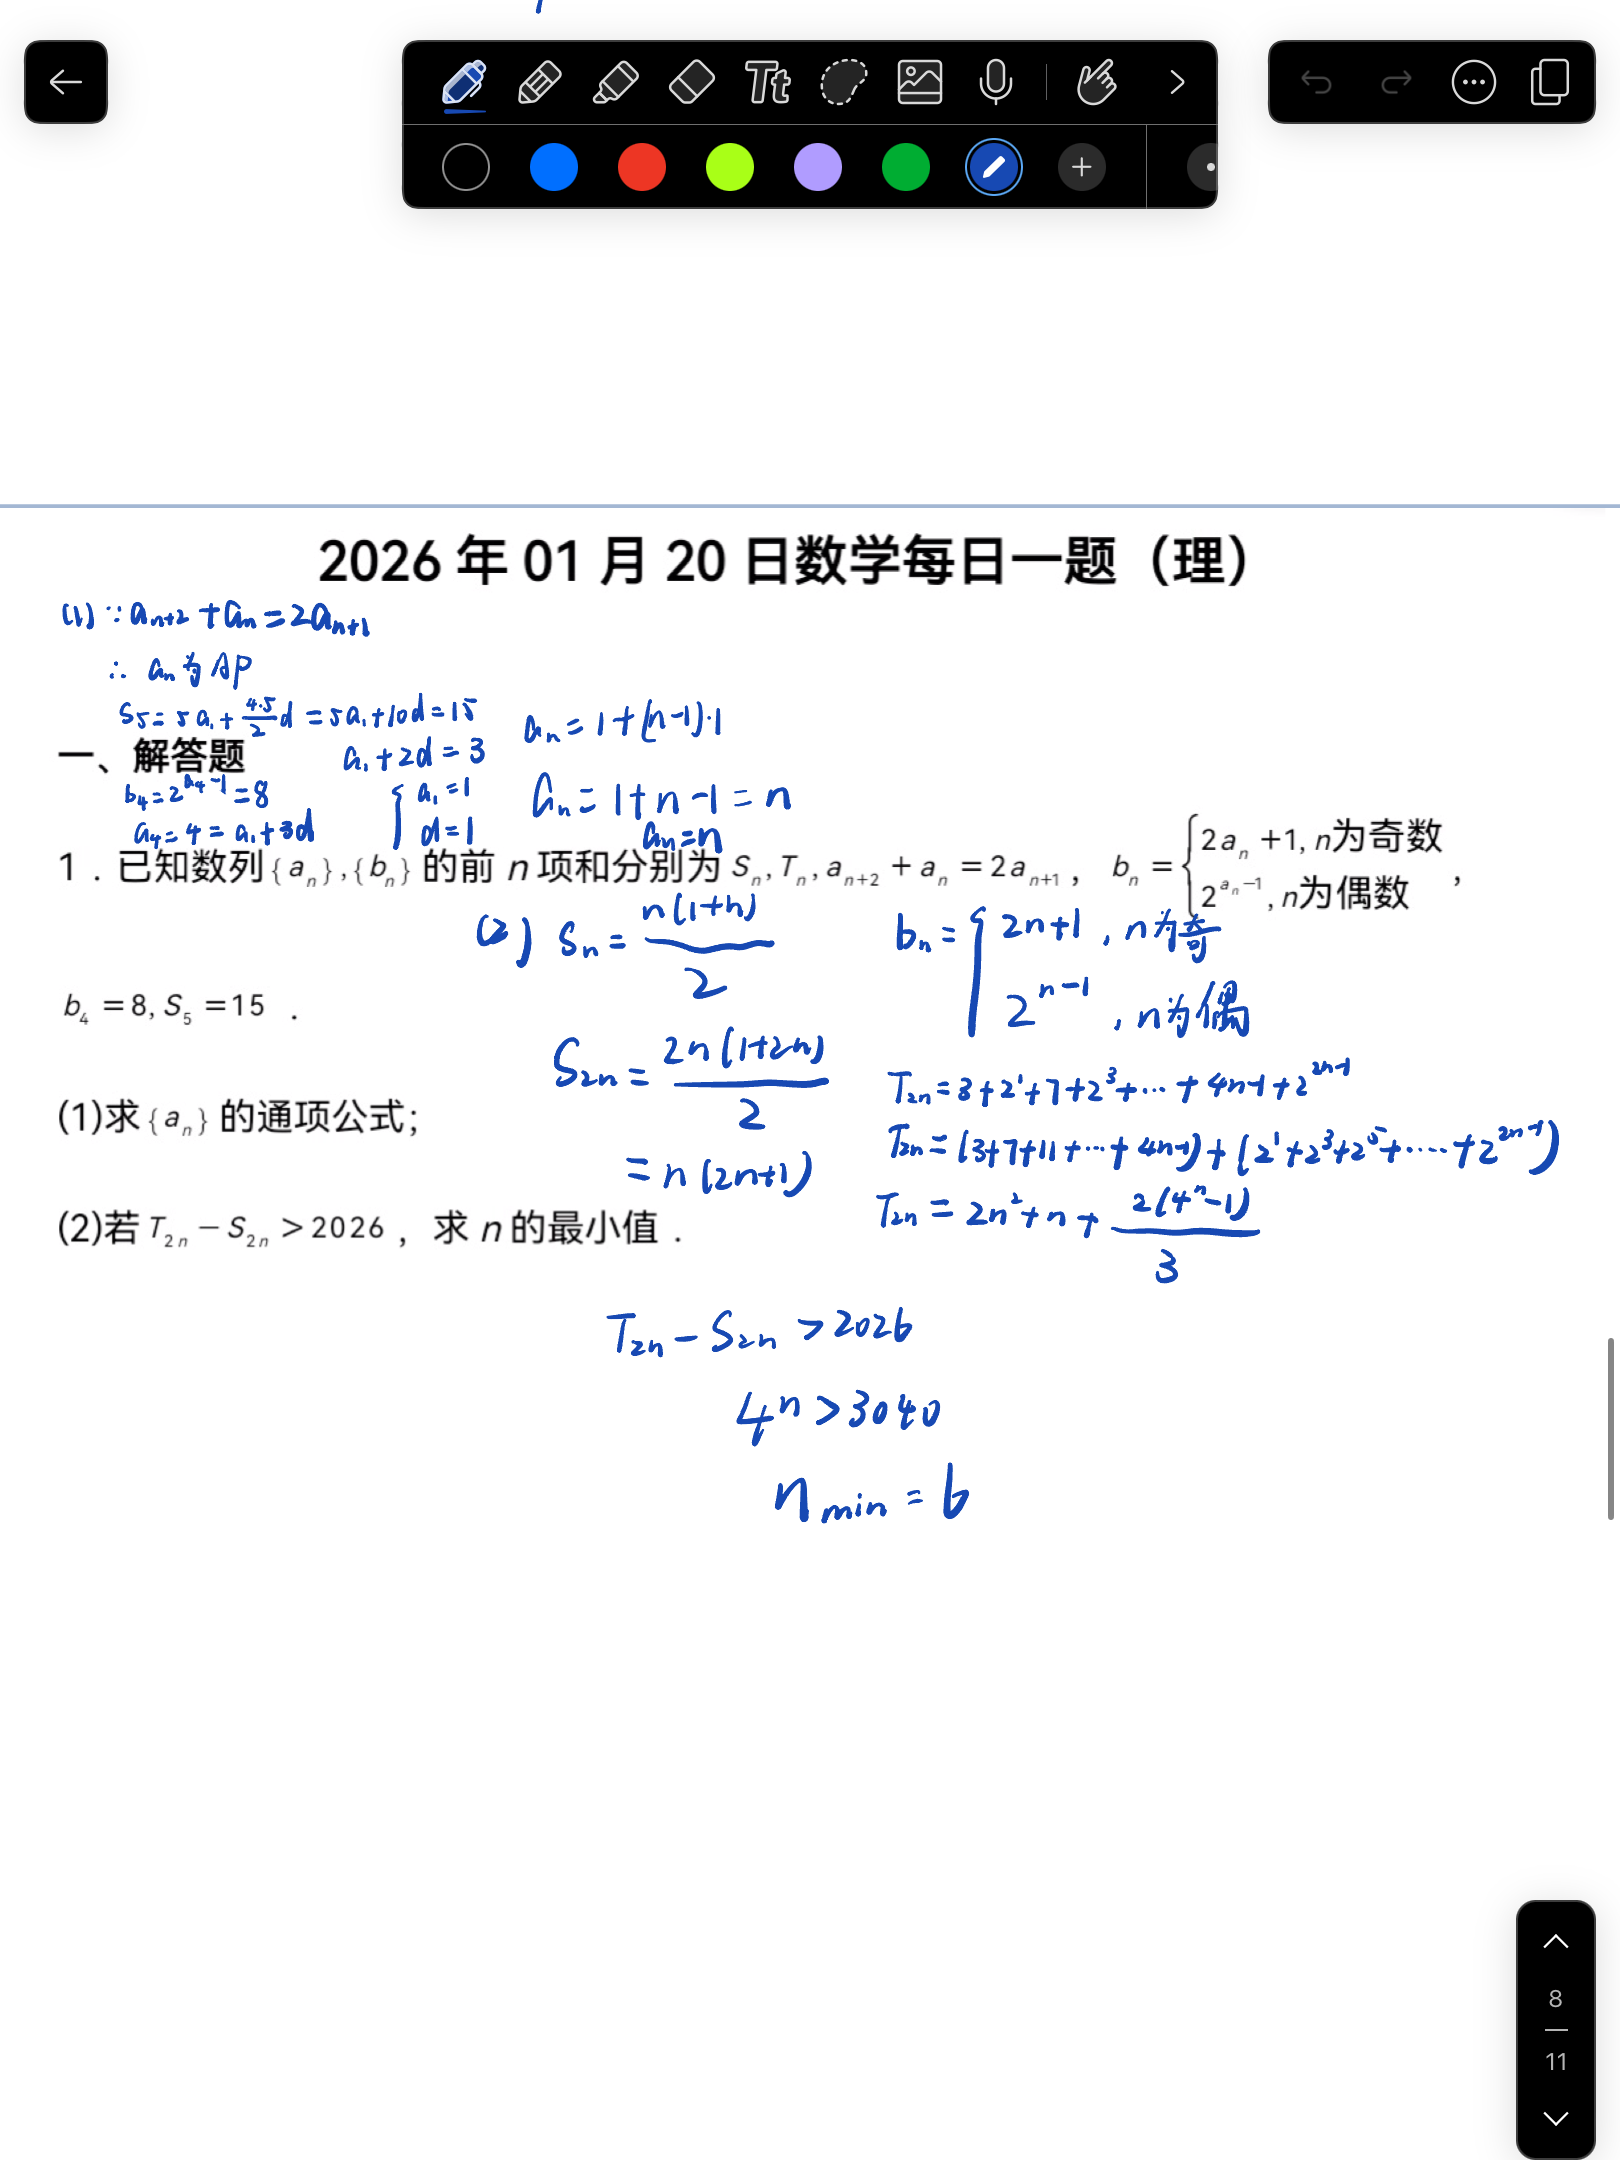 Tt
2026 年 01 月 20 日数学每日一题（理）
(1) ∵ aₙ₊₂ + aₙ = 2aₙ₊₁
∴ aₙ 为 AP
S₅ = 5a₁ + 4·5/2 d = 5a₁ + 10d = 15
aₙ = 1 + (n-1)·1
一、解答题
a₁ + 2d = 3
b₄ = 2^(a₄-1) = 8
{ a₁ = 1
aₙ = 1 + n - 1 = n
a₄ = 4 = a₁ + 3d
d = 1
aₙ = n
1．已知数列{aₙ},{bₙ} 的前 n 项和分别为 Sₙ, Tₙ, aₙ₊₂ + aₙ = 2aₙ₊₁， bₙ = { 2aₙ +1, n为奇数
2^(aₙ-1), n为偶数 ，
(2) Sₙ = n(1+n)/2
bₙ = { 2n+1 , n为奇
2^(n-1) , n为偶
b₄ = 8, S₅ = 15 ．
S₂ₙ = 2n(1+2n)/2
T₂ₙ = 3 + 2¹ + 7 + 2³ + ··· + 4n-1 + 2^(2n-1)
(1)求{aₙ} 的通项公式；
T₂ₙ = (3+7+11+···+4n-1) + (2¹+2³+2⁵+·····+2^(2n-1))
= n(2n+1)
T₂ₙ = 2n² + n + 2(4ⁿ-1)/3
(2)若 T₂ₙ － S₂ₙ ＞2026 ，求 n 的最小值．
T₂ₙ - S₂ₙ > 2026
4ⁿ > 3040
n min = 6
8
11